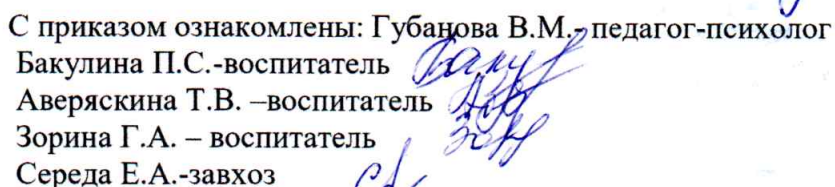 С приказом ознакомлены: Губанова В.М.- педагог-психолог
Бакулина П.С.-воспитатель
Аверяскина Т.В. –воспитатель
Зорина Г.А. – воспитатель
Середа Е.А.-завхоз